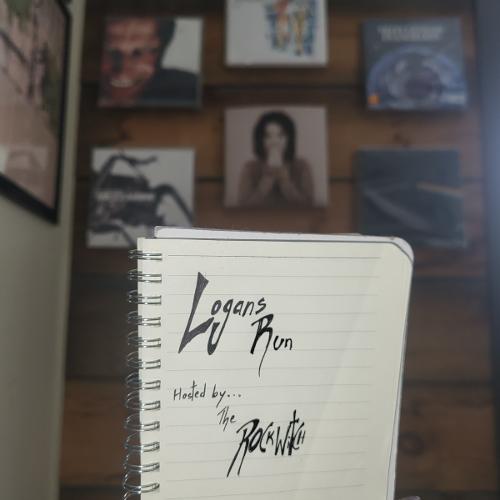 Logans
Run
Hosted by...
The
ROCKWITCH